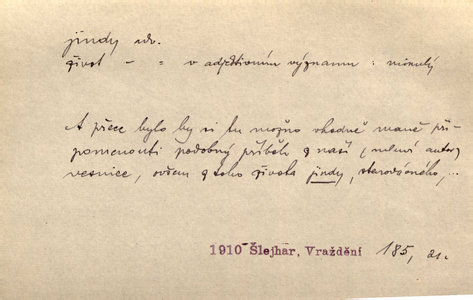 jindy adv.
život - = v adjektivním významu : minulý
A přece bylo by si tu možno vhodně maně při-
pomenouti podobný příběh z naší (mluví autor)
vesnice, ovšem z toho života jindy, starodávného,...
1910 Šlejhar, Vraždění 185, 21.